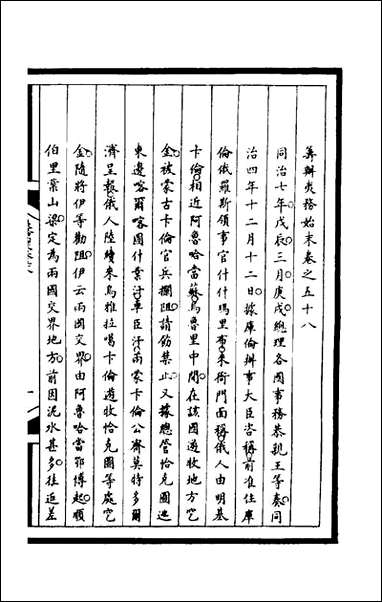 籌辦夷務始末卷之五十八
同治七年戊辰三月庚戌總理各國事務恭親王等奏同
治四年十二月十二日據庫倫辦事大臣咨稱前准住庫
倫俄羅斯領事官什什瑪里布來衙門面稱俄人由明基
卡倫相近阿魯哈當蘇烏魯里中間在該國遊牧地方挖
金被蒙古卡倫官兵攔阻請飭禁止又據總管恰克圖迤
東邊喀爾喀圖什業汗車臣汗兩蒙卡倫公齋莫特多爾
濟呈報俄人陸續來烏雅拉噶卡倫遊牧恰克圖等處挖
金隨將伊等勸阻伊云兩國交界由阿魯哈當鄂博起順
伯里葉山梁定為兩國交界地方前因泥水甚多往返差